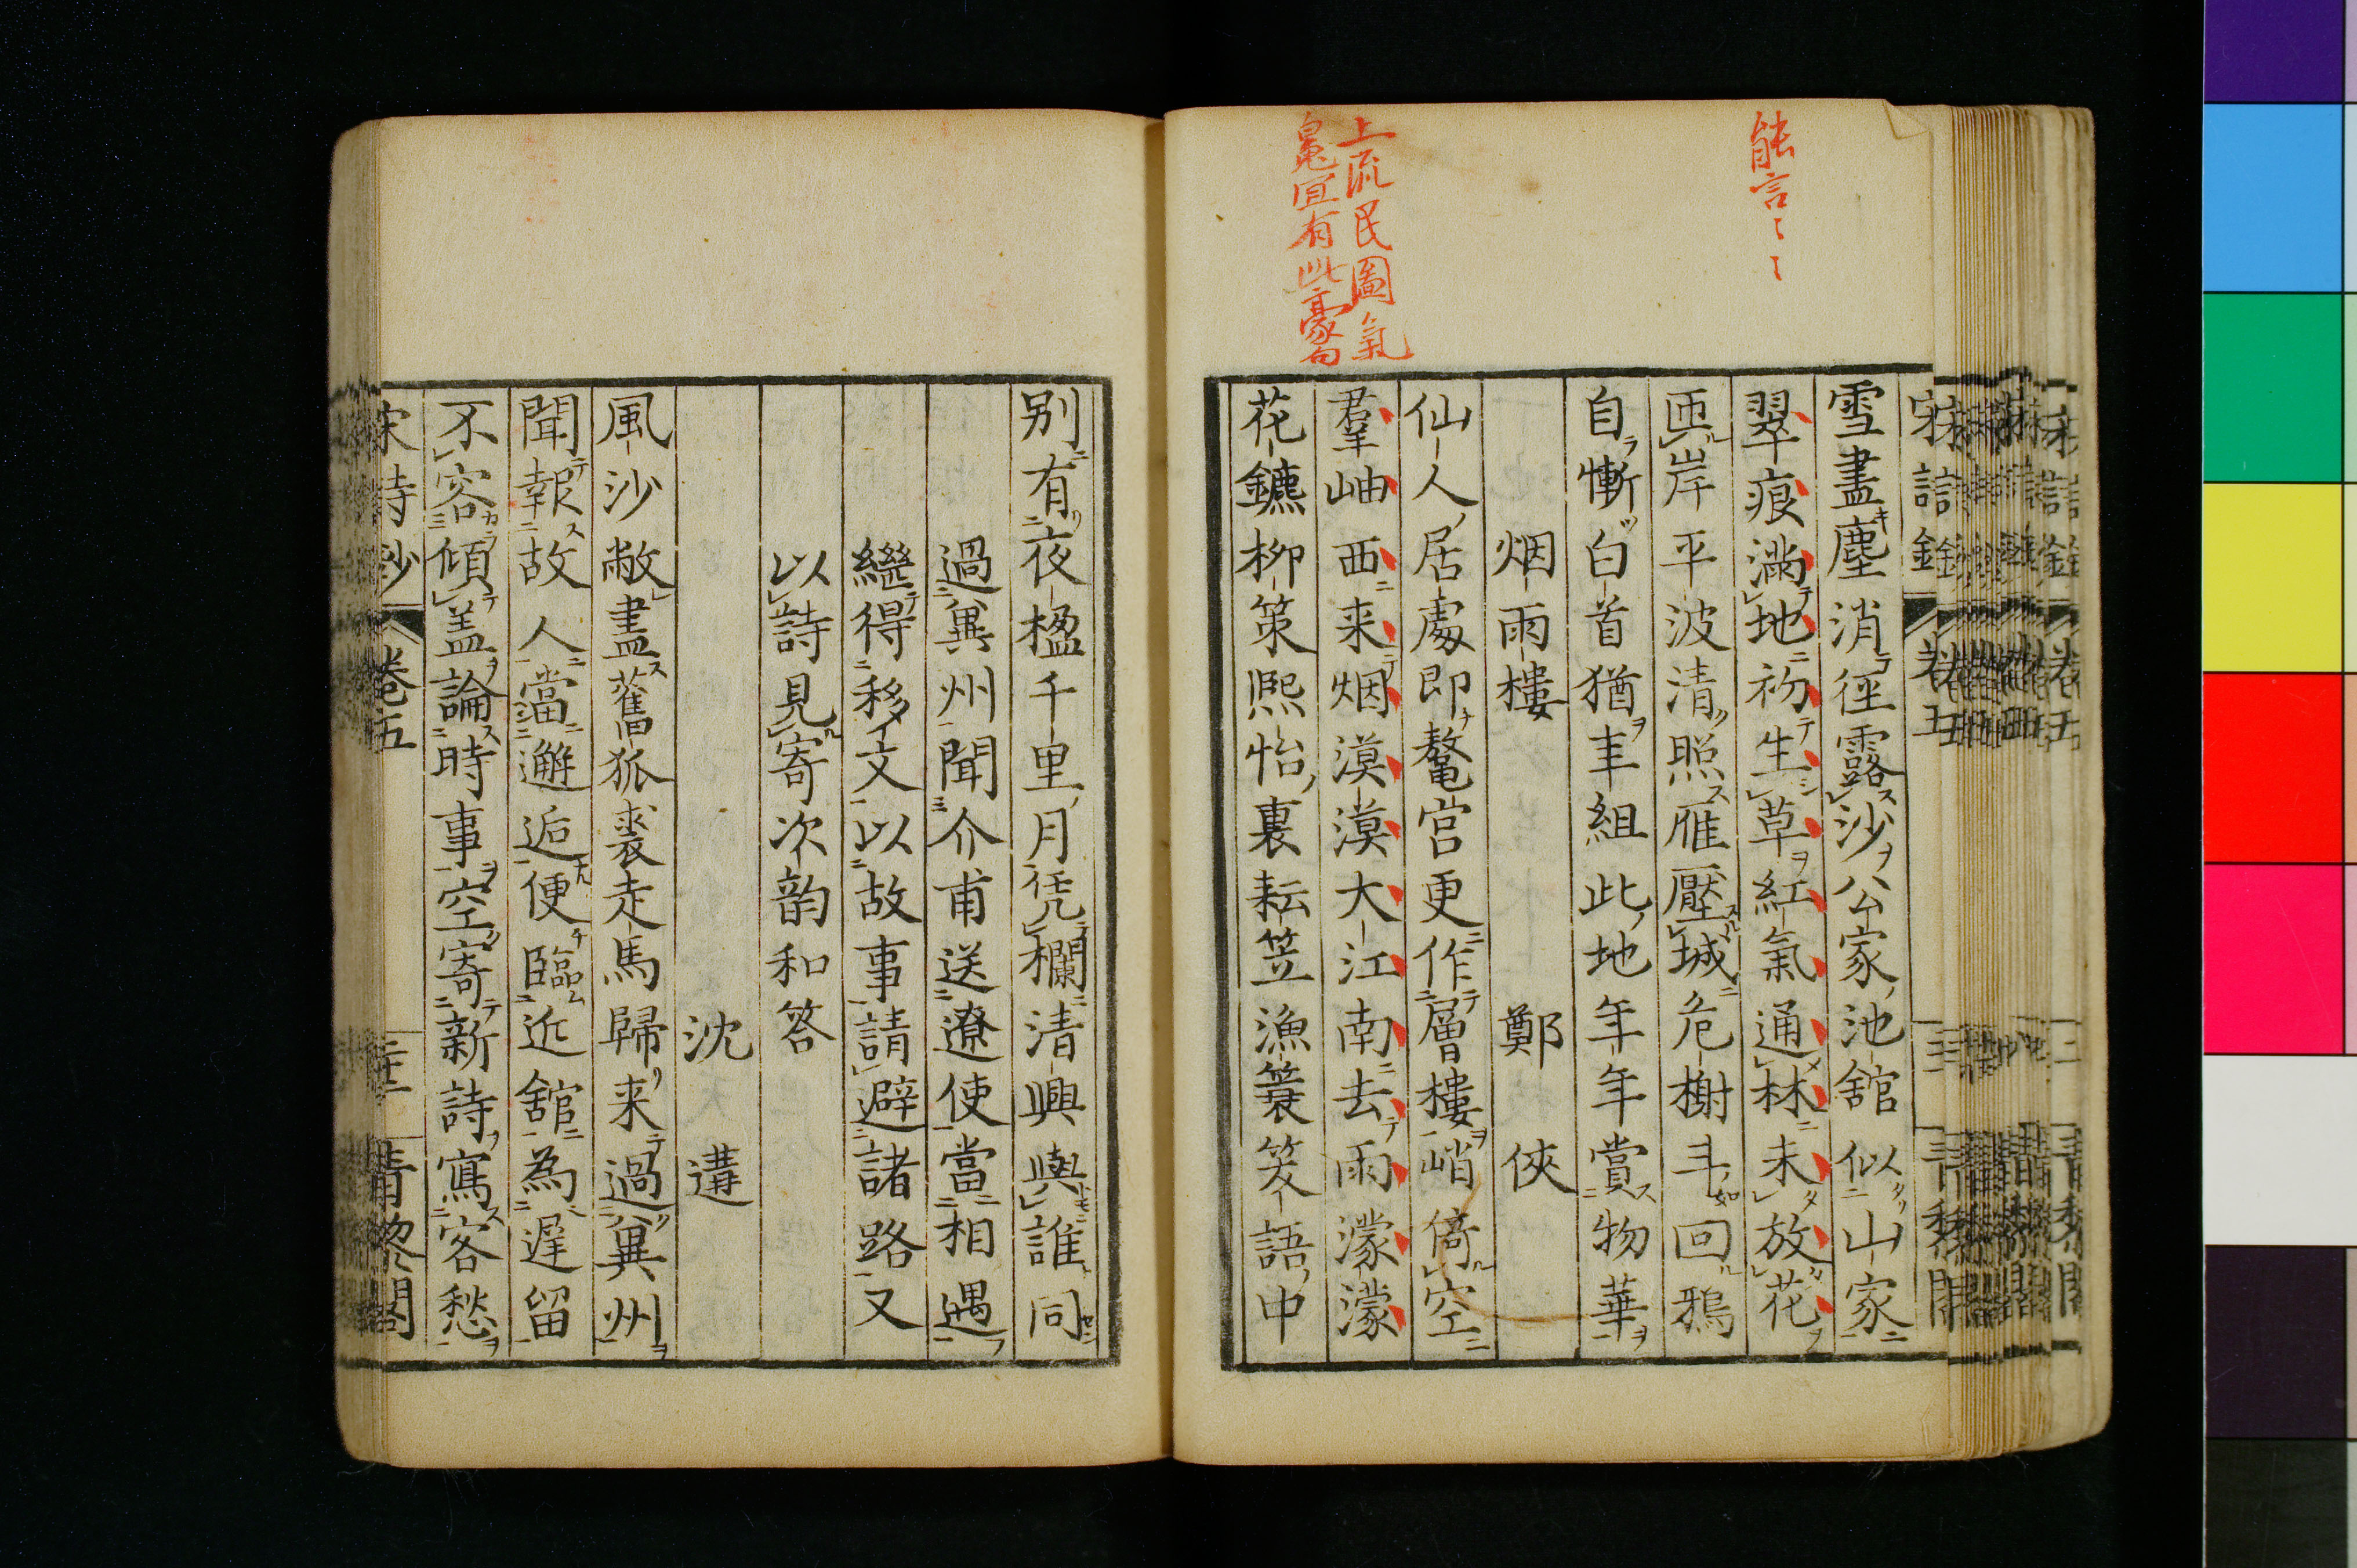 能言〻〻
上流民圖氣
鬼宜有此豪句
雪盡塵消徑露沙公家池舘似山家
翠痕滿地初生草紅氣通林未放花
匝岸平波清照雁壓城危榭斗回鴉
自慚白首猶丯組此地年年賞物華
烟雨樓　鄭俠
仙人居處即鼇宮更作層樓峭倚空
羣岫西来烟漠漠大江南去雨濛濛
花鑣柳策熙怡裏耘笠漁簑笑語中
别有夜楹千里月凭欄清興與誰同
過兾州聞介甫送遼使當相遇
繼得移文以故事請避諸路又
以詩見寄次韵和答
沈遘
風沙敝盡舊狐裘走馬歸来過兾州
聞報故人當邂逅便臨近舘為遲留
不容傾盖論時事空寄新詩寫客愁
宋詩鈔　卷五　青黎閣